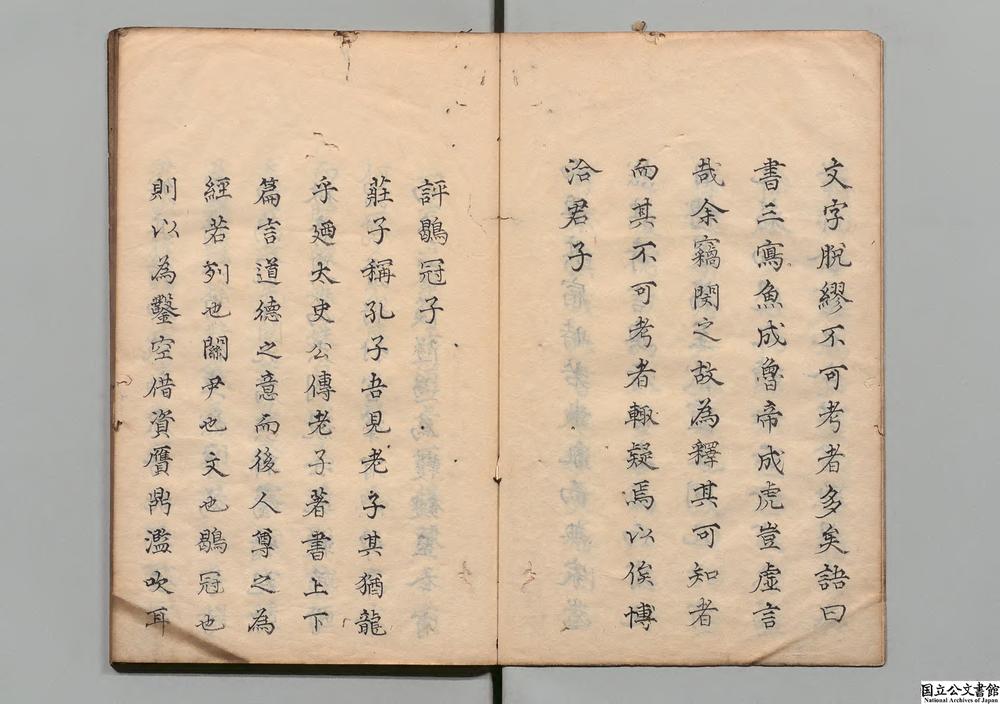 文字脫繆不可考者多矣語曰
書三寫魚成魯帝成虎豈虛言
哉余竊閔之故為釋其可知者
而其不可考者輙疑焉以俟博
洽君子
評鶡冠子
莊子稱孔子吾見老子其猶龍
乎廼太史公傳老子著書上下
篇言道德之意而後人尊之為
經若列也關尹也文也鶡冠也
則以為鑿空借資贋鼎濫吹耳
国立公文書館
National Archives of Japan